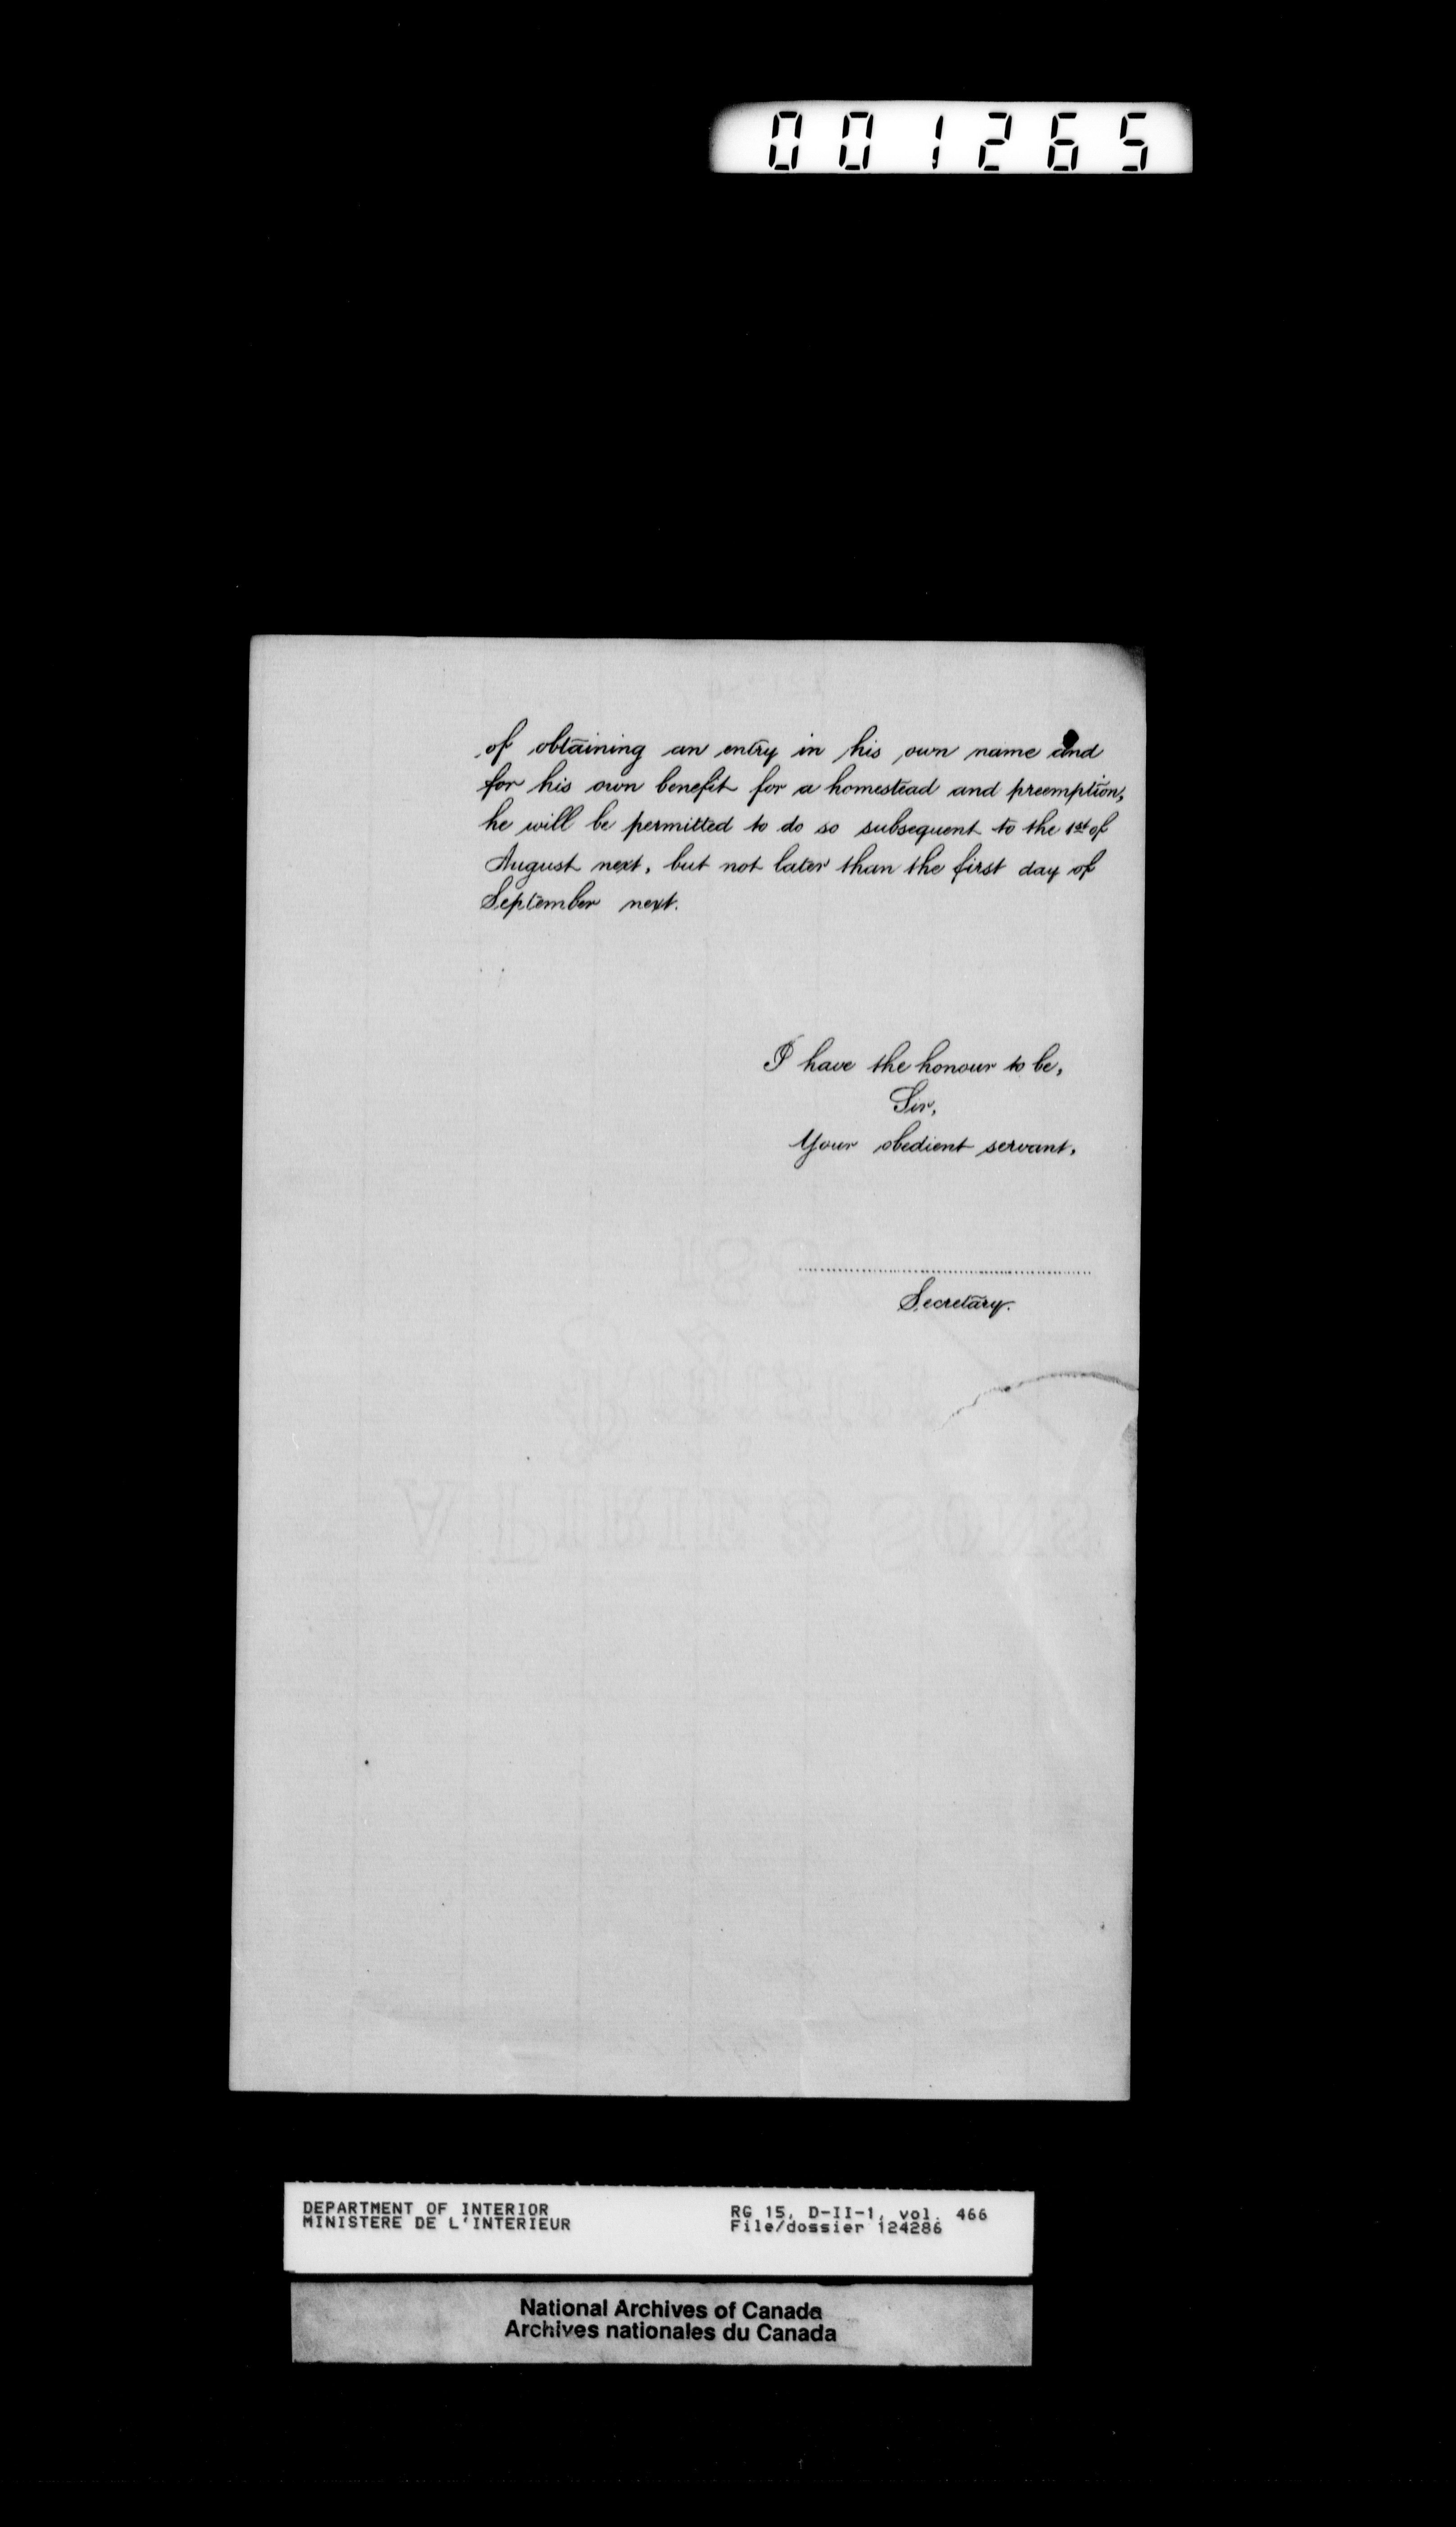 001265
of obtaining an entry in his own name and
for his own benefit for a homestead and preemption,
he will be permitted to do so subsequent to the 1st of
August next, but not later than the first day of
September next.
I have the honour to be,
Sir,
Your obedient servant,
Secretary.
DEPARTMENT OF INTERIOR
MINISTERE DE L'INTERIEUR
RG 15, D-II-1, vol. 466
File/dossier 124286
National Archives of Canada
Archives nationales du Canada